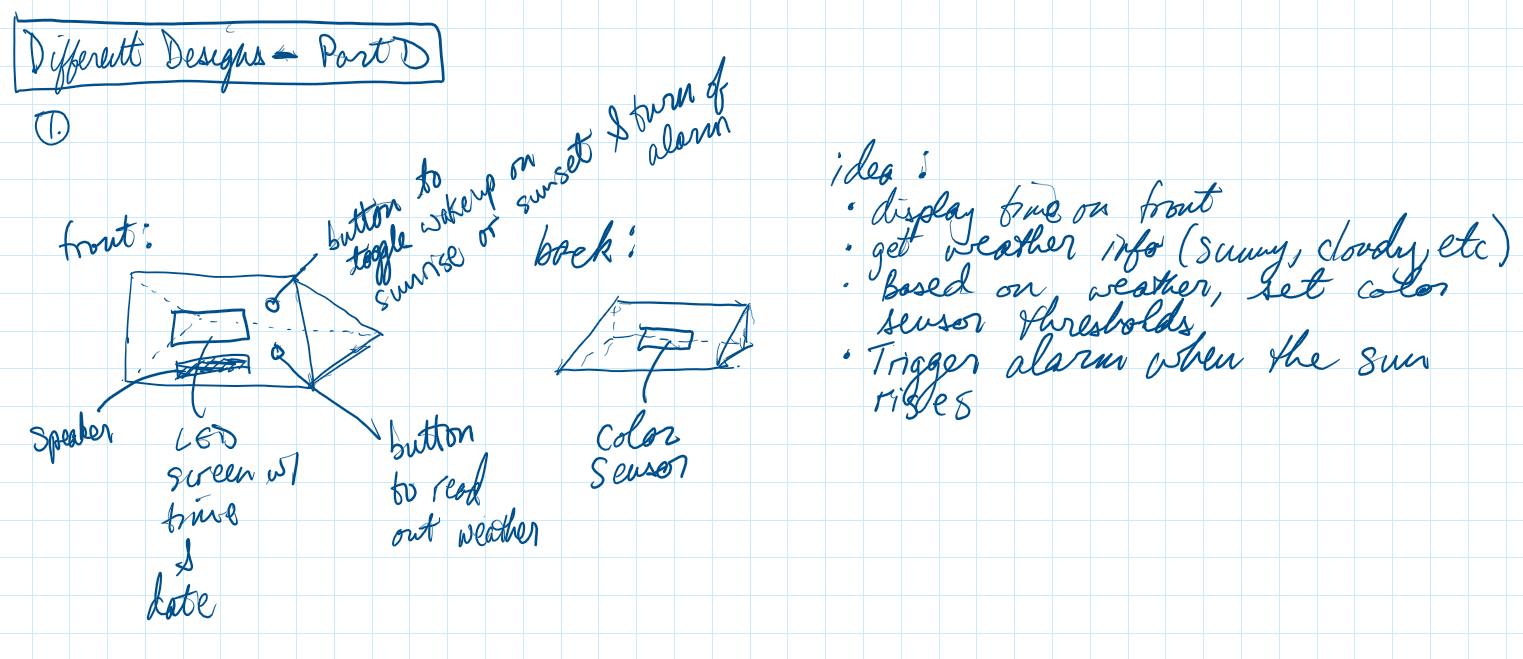 Different Designs - Part D
1.
front:
button to
toggle wakeup on
sunrise or sunset & turn of
alarm
back:
speaker
LED
screen w/
time
&
date
button
to read
out weather
color
sensor
idea:
• display time on front
• get weather info (sunny, cloudy, etc)
• Based on weather, set color
sensor thresholds
• Trigger alarm when the sun
rises